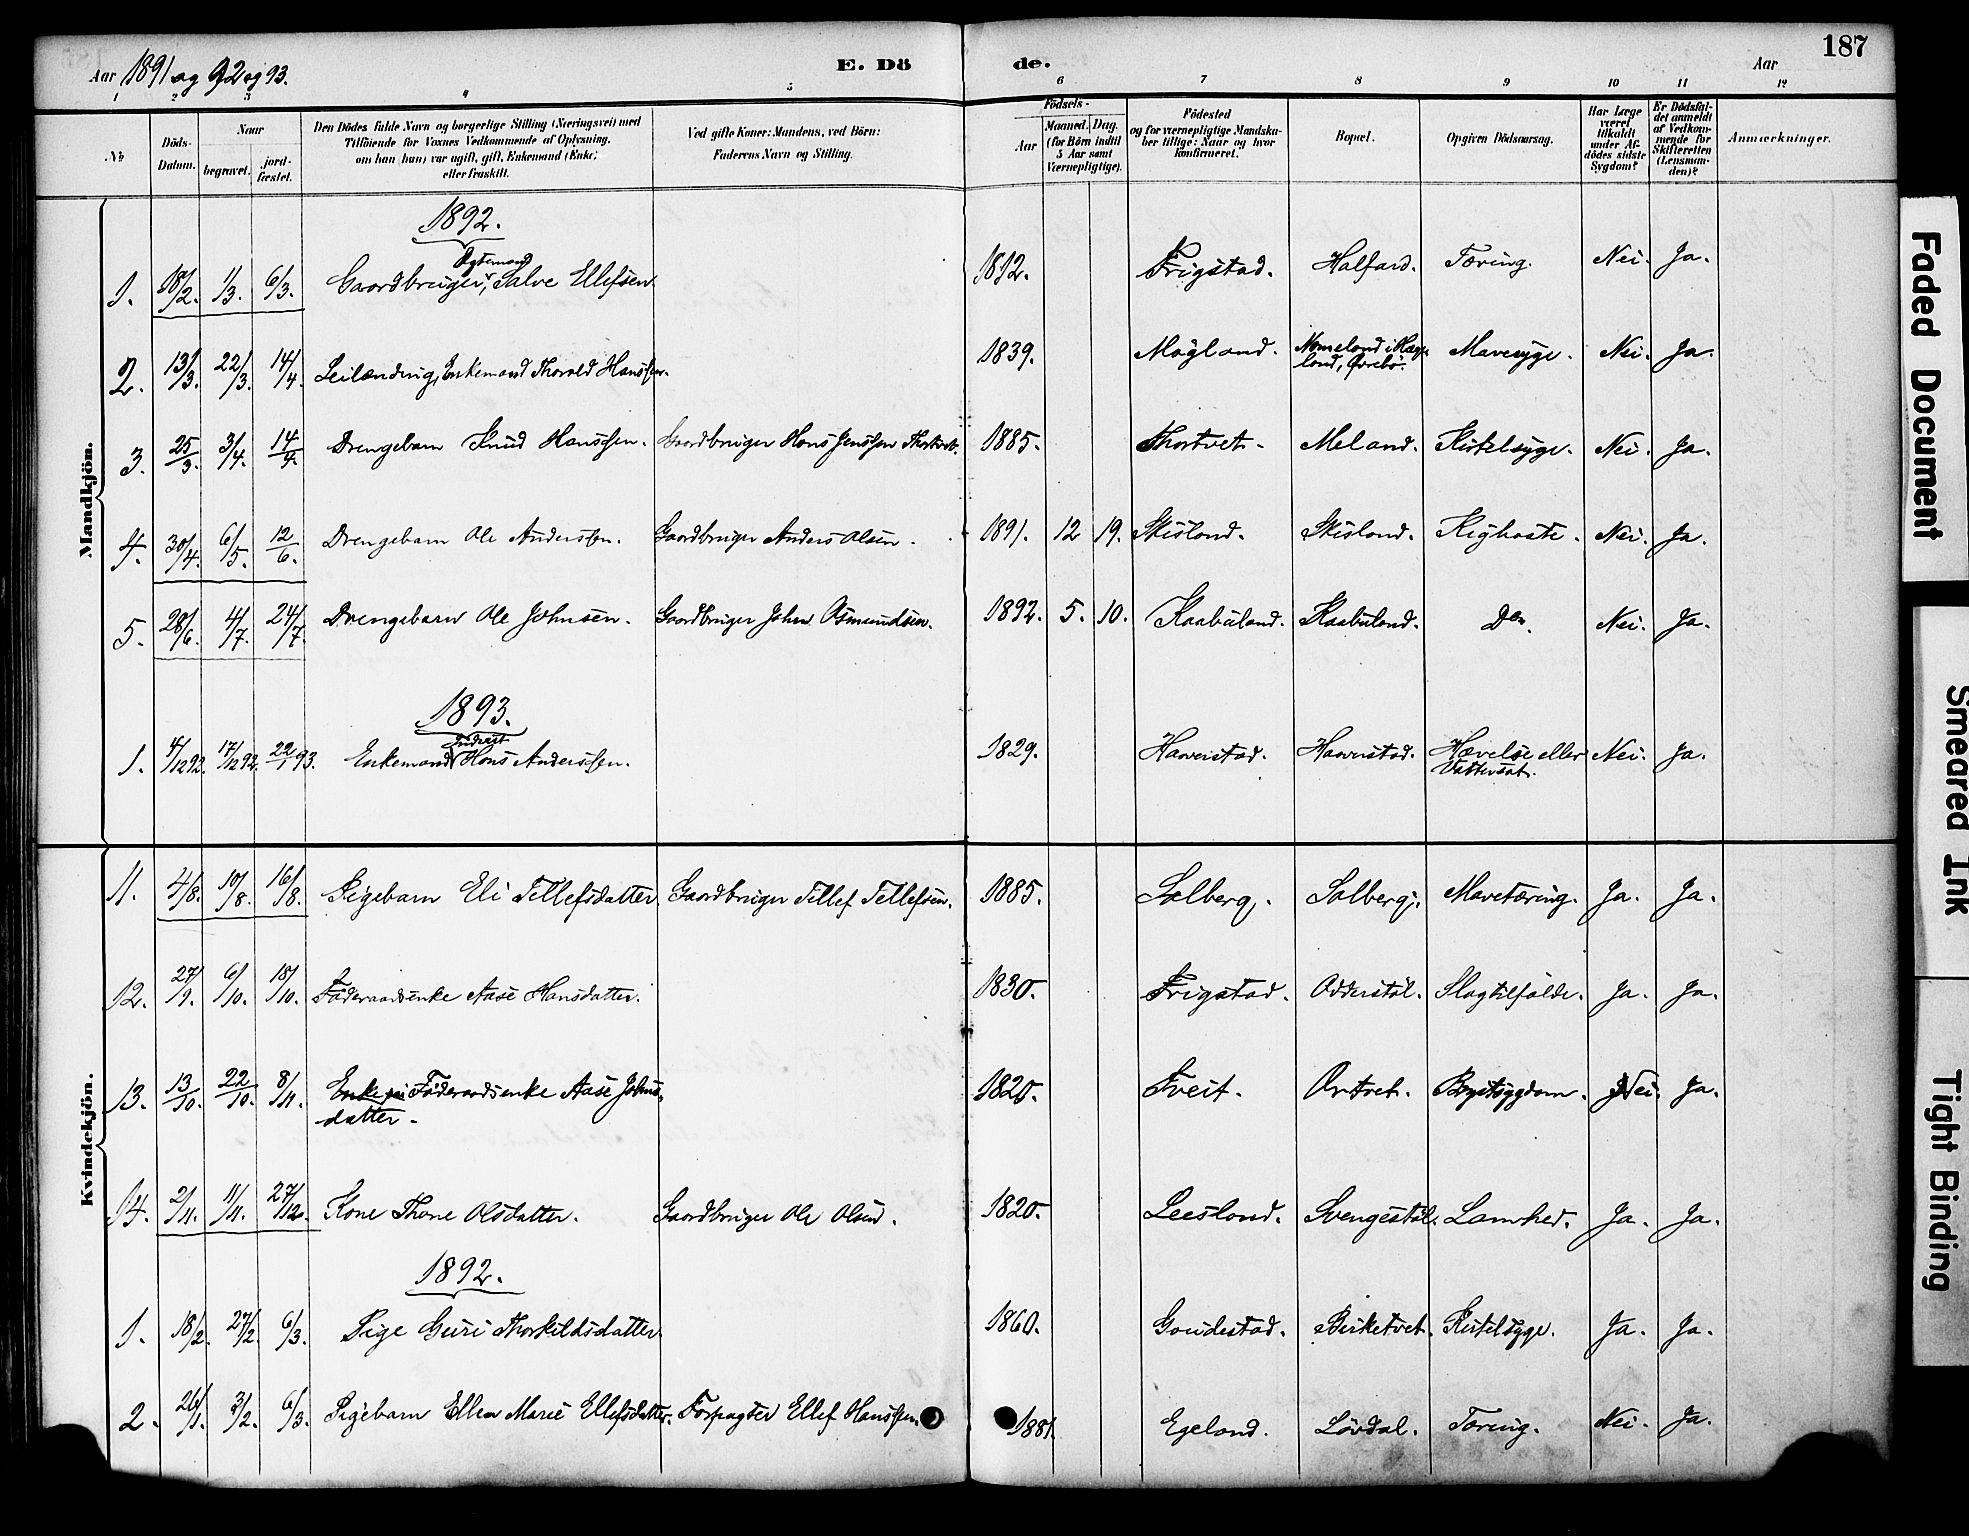 Aar 1891 og 92 og 93.
E. Dö
de.
Aar
187
1 2 3 4 5 6 7 8 9 10 11 12
№
Döds-Datum.
Naar
begravet.
jord-fæstet.
Den Dödes fulde Navn og borgerlige Stilling (Næringsvei) med
Tilföiende for Voxnes Vedkommende af Oplysning,
om han (hun) var ugift, gift, Enkemand (Enke)
eller fraskilt.
Ved gifte Koner: Mandens, ved Börn:
Faderens Navn og Stilling.
Födsels-
Aar
Maaned. Dag.
(for Börn indtil
5 Aar samt
Værnepligtige).
Födested
og for værnepligtige Mandska-
ber tillige: Naar og hvor
konfirmeret.
Bopæl.
Opgiven Dödsaarsag.
Har Læge
været
tilkaldt
under Af-
dödes sidste
Sygdom?
Er Dödsfal-
det anmeldt
af Vedkom-
mende for
Skifteretten
(Lensman-
den)?
Anmærkninger.
Mandkjön.
1892.
Ægtemand
1. 18/2. 1/3. 6/3. Gaardbruger, Salve Ellefsen 1812. Frigstad. Halfard. Tæring. Nei. Ja.
2. 13/3. 22/3. 14/4. Leilænding, Enkemand Thorald Hanssen. 1839. Mögland. Nomeland i Hæge-
land, Övrebö. Mavesyge. Nei. Ja.
3. 25/3. 3/4. 14/4. Drengebarn Knud Hanssen. Gaardbruger Hans Jenssen Thortvet. 1885. Thortvet. Meland. Kirtelsyge. Nei. Ja.
4. 30/4. 6/5. 12/6. Drengebarn Ole Anderssen. Gaardbruger Anders Olsen. 1891. 12 19. Skisland. Skisland. Kighoste. Nei. Ja.
5. 28/6. 4/7. 24/7. Drengebarn Ole Johnsen. Gaardbruger John Osmundsen. 1892. 5. 10. Kaabuland. Kaabuland. Do. Nei. Ja.
1893.
Inderst
1. 4/12 92. 17/12 92. 22/1 93. Enkemand Hans Anderssen. 1829. Haaverstad. Haaverstad. Hævelse eller
Vattersot. Nei. Ja.
Kvindekjön.
11. 4/8. 10/8. 16/8. Pigebarn Eli Tellefsdatter. Gaardbruger Tellef Tellefsen. 1885. Solberg. Solberg. Mavetæring. Ja. Ja.
12. 27/9. 6/10. 18/10. Föderaadsenke Aase Hansdatter. 1830. Frigstad. Odderstöl. Slagtilfælde. Ja. Ja.
13. 13/10. 22/10. 8/11. Enke Föderaadsenke Aase Johns-
datter. 1820. Tveit. Omtvet. Brystsygdom. Nei. Ja.
14. 2/11. 11/11. 27/12. Kone Thone Olsdatter. Gaardbruger Ole Olsen. 1820. Leesland. Svengestöl. Lamhed. Ja. Ja.
1892.
1. 18/2. 27/2. 6/3. Pige Guri Thorkildsdatter 1860. Goudestad. Birketvet. Kirtelsyge. Ja. Ja.
2. 26/1. 3/2. 6/3. Pigebarn Ellen Marie Ellefsdatter. Forpagter Ellef Hanssen. 1881. Egeland. Lövdal. Tæring. Nei. Ja.
Faded Document
Smeared Ink
Tight Binding